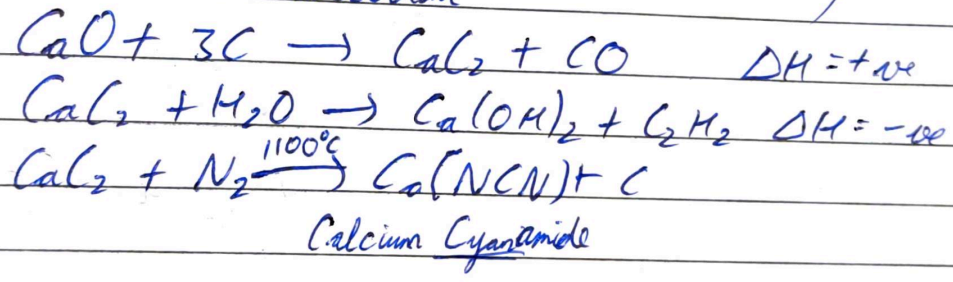 CaO + 3C → CaC₂ + CO ΔH = +ve
CaC₂ + H₂O → Ca(OH)₂ + C₂H₂ ΔH = -ve
CaC₂ + N₂ 1100°C→ Ca(NCN) + C
Calcium Cyanamide